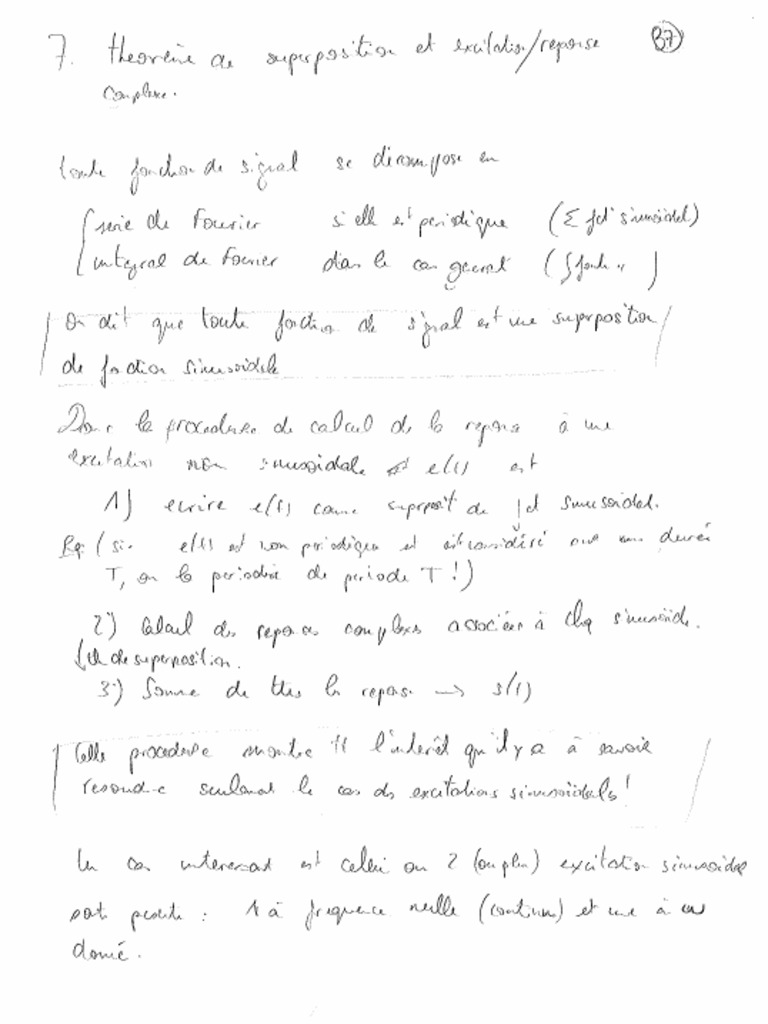 7. theorème de superposition et excitation/reponse B7
complexe.
toute fonction de signal se decompose en
serie de Fourier si elle est periodique (Σ fct sinusoidal)
integral de Fourier dans le cas general (∫ fonct " )
On dit que toute fonction de signal est une superposition
de fonction sinusoidale
Donc la procedure de calcul de la reponse à une
excitation non sinusoidale e(t) est
1) ecrire e(t) comme superposit de fct sinusoidal.
Rq (si e(t) est non periodique et est considéré sur une durée
T, on la periodise de periode T !)
2) Calcul des reponses complexes associées à chq sinusoide.
th de superposition.
3) Somme de ttes les repose → s(t)
Cette procedure montre tt l'interêt qu'il y a à savoir
resoudre seulement le cas des excitations sinusoidales !
Un cas interessant est celui ou 2 (ou plus) excitation sinusoidales
sont : 1 à frequence nulle (continu) et une à ω
donné.